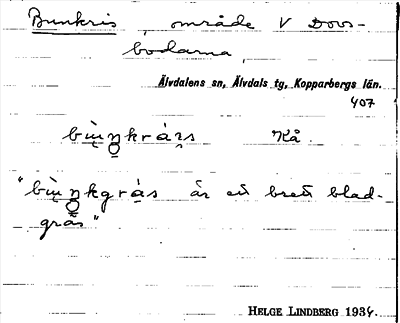 Bunkris, område V Dovs-
bodarna,
Älvdalens sn, Älvdals tg, Kopparbergs län.
407
bùŋkrà̱ı̱s Kå.
"bùŋkgrás är ett brett blad-
gräs"
HELGE LINDBERG 1934.